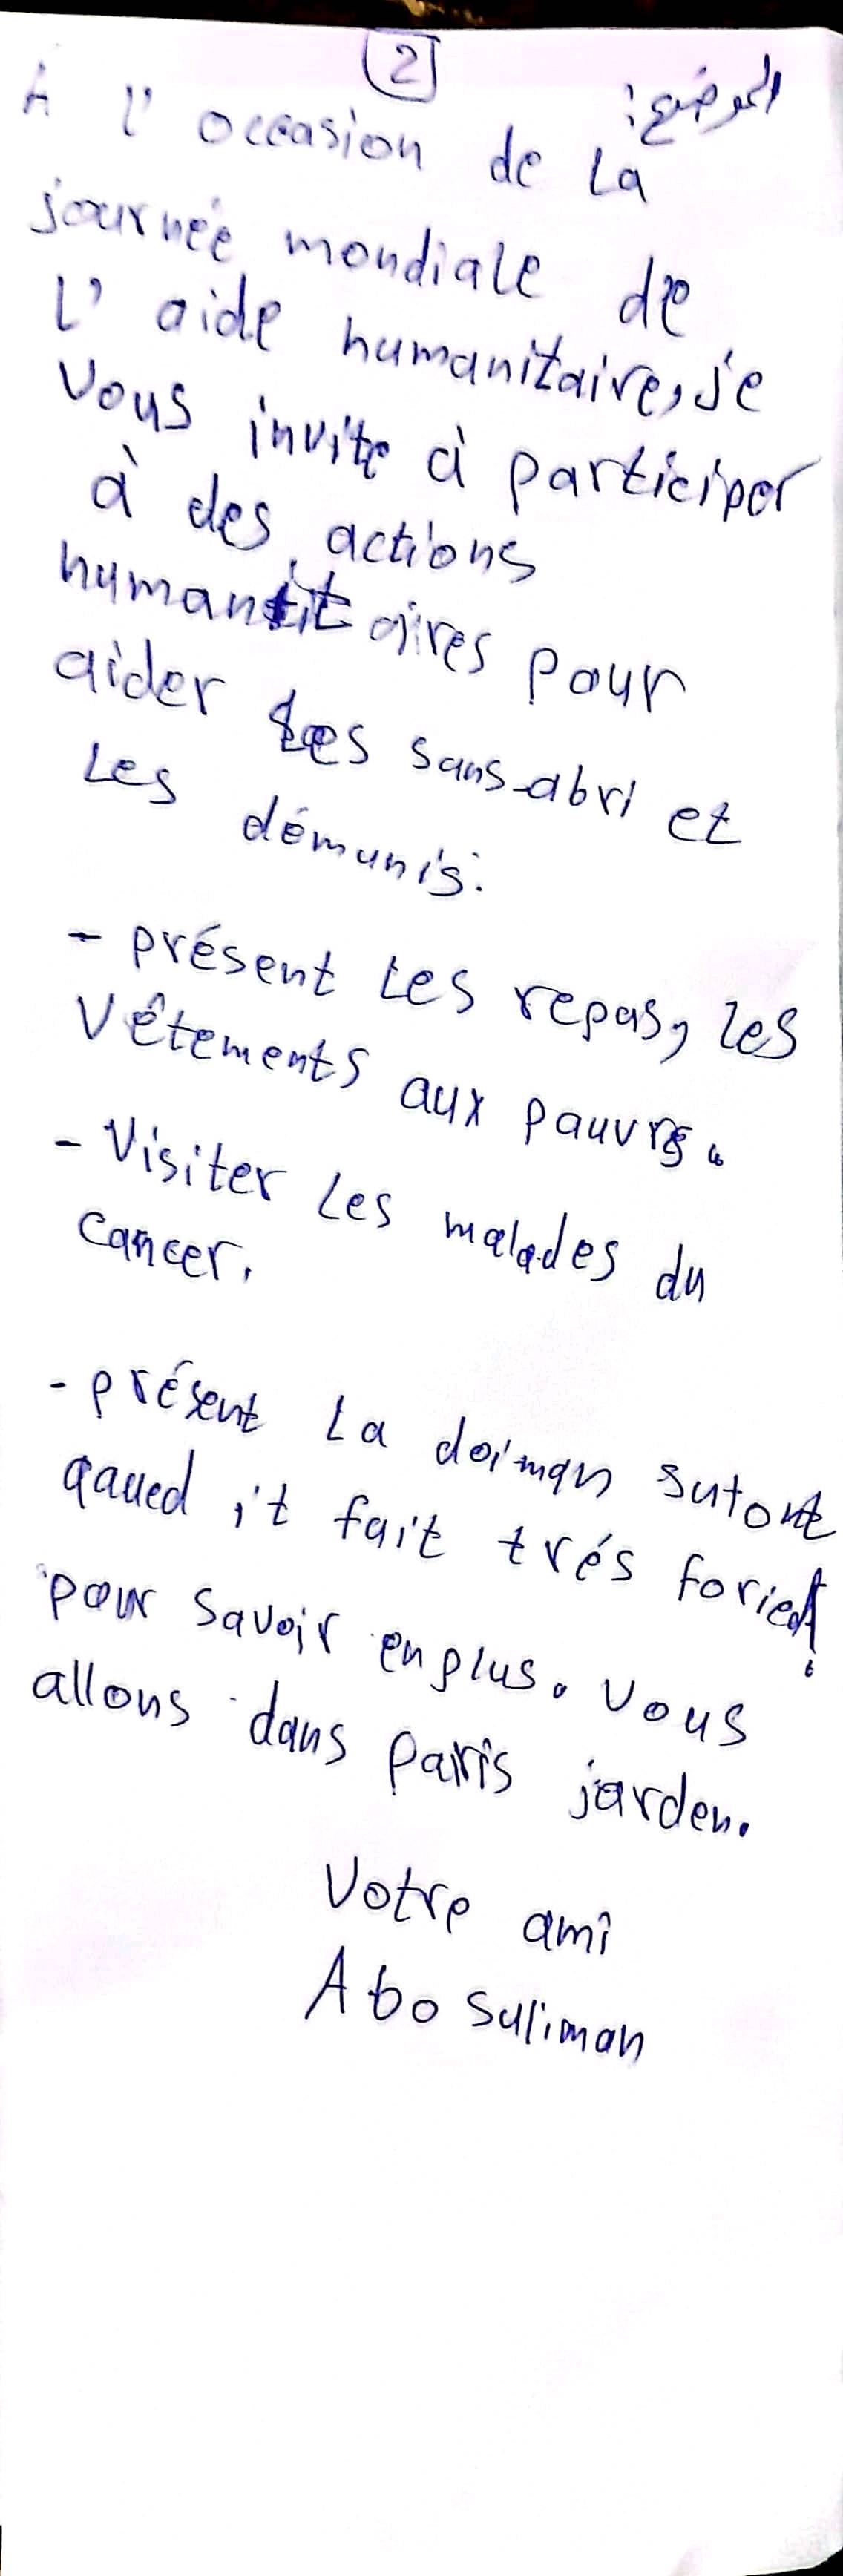 2
الموضوع:
À l'occasion de la
journée mondiale de
l'aide humanitaire, je
vous invite à participer
à des actions
humanitaires pour
aider les sans-abri et
les démunis:
- présent les repas, les
vêtements aux pauvrs.
- Visiter les malades du
cancer.
- présent la doiman sutout
qaued it fait trés foried!
pour savoir en plus. vous
allons dans paris jarden.
Votre ami
Abo suliman